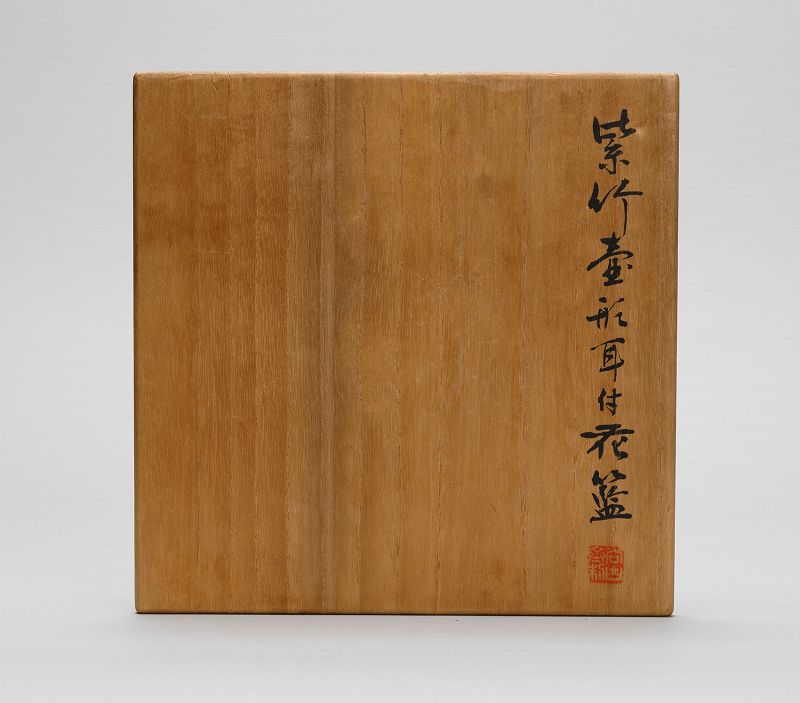 紫竹壷形耳付花籃